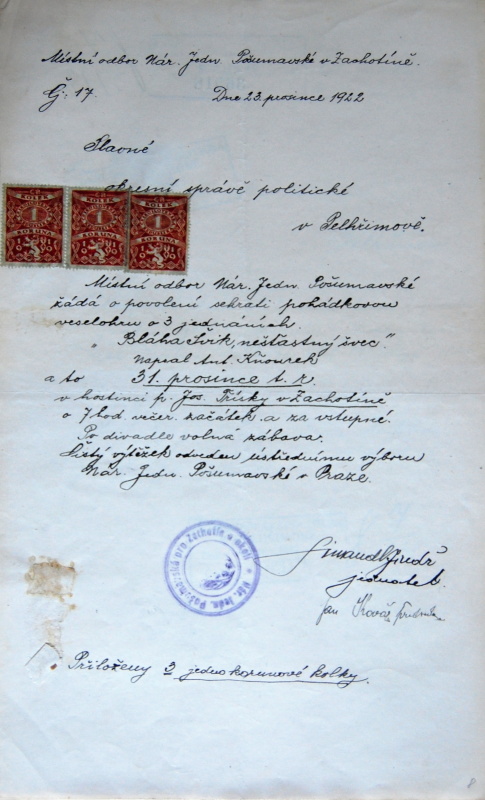 Místní odbor Nár. Jedn. Pošumavské v Zachotíně.
Čj: 17. Dne 23. prosince 1922
Slavné
okresní správě politické
v Pelhřimově.
KOLEK KOLEK KOLEK
1 1 1
KORUNA KORUNA KORUNA
Místní odbor Nár. Jedn. Pošumavské
žádá o povolení sehrati pohádkovou
veselohru o 3 jednáních
"Bláha Ivík, nešťastný švec".
napsal Ant. Kňourek
a to 31. prosince t. r.
v hostinci p. Jos. v Zachotíně
o 7 hod. večer. začátek a za vstupné.
Po divadle volna zábava.
Čistý výtěžek odveden ústřednímu výboru
Nár. Jedn. Pošumavské v Praze.
Nár. Jedn. Pošumavská pro a okolí
jednatel.
Jan Kovář
Přiloženy 3 jednokorunové kolky.
8